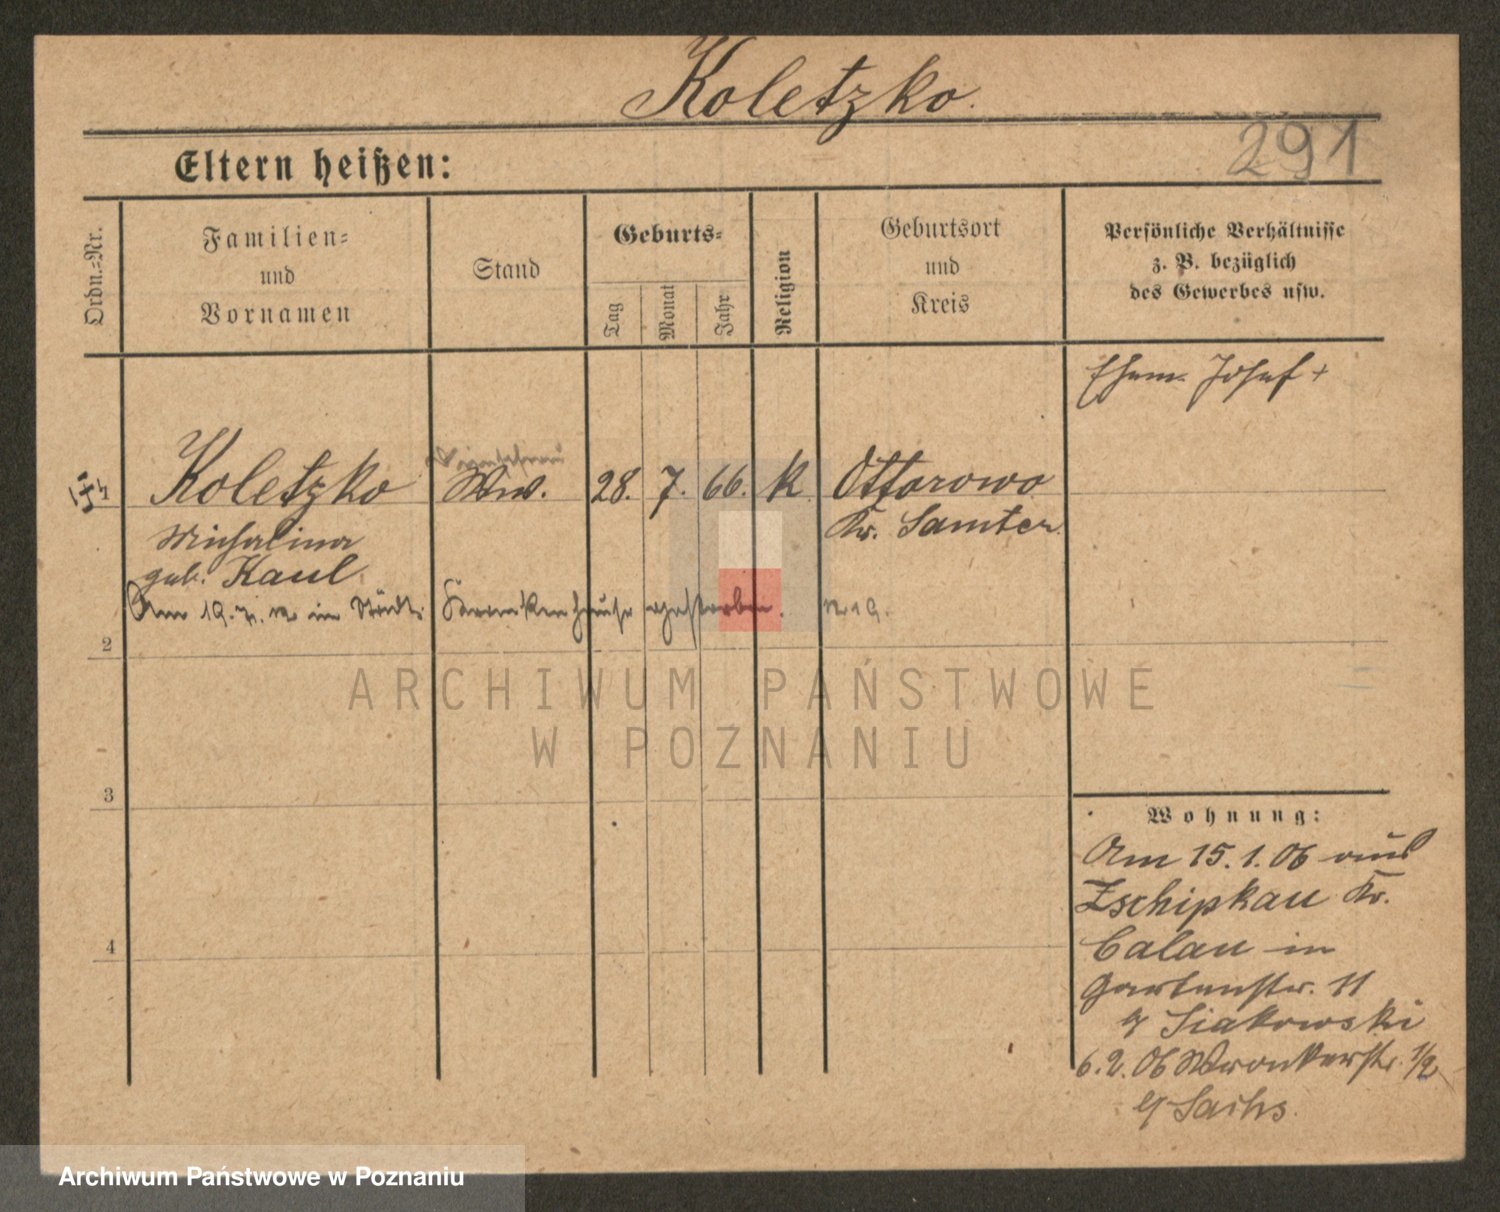 Koletzko.
291
Eltern heißen:
Ordn.-Nr.
Familien-
und
Vornamen
Stand
Geburts-
Tag
Monat
Jahr
Religion
Geburtsort
und
Kreis
Persönliche Verhältnisse
z. B. bezüglich
des Gewerbes usw.
Ehem. Josef +
Koletzko Ww. 28. 7. 66. K. Ottorowo
Kr. Samter
Michalina
geb. Kaul
Am 19. 7. im Städt. Krankenhause gestorben.
2
ARCHIWUM PAŃSTWOWE
W POZNANIU
3
4
Wohnung:
Am 15.1.06 aus
Zschipkau Kr.
Calau in
Gartenstr. 11
Siakowski
6.2.06 Wronkerstr. 1/2
Sachs.
Archiwum Państwowe w Poznaniu